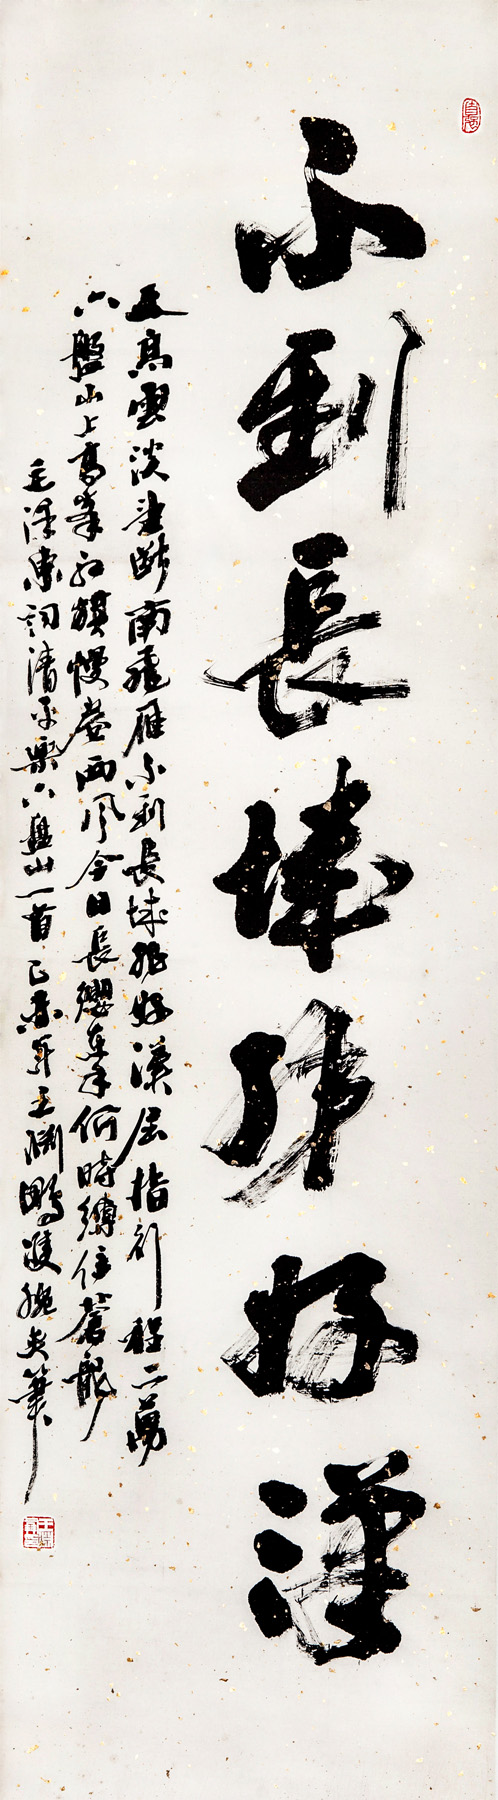 不到長城非好漢
天高雲淡望斷南飛雁不到長城非好漢屈指行程二萬
六盤山上高峯紅旗慢卷西風今日長纓在手何時縛住蒼龍
毛澤東詞清平樂六盤山一首己亥年王淵鵬雙鉤矢筆